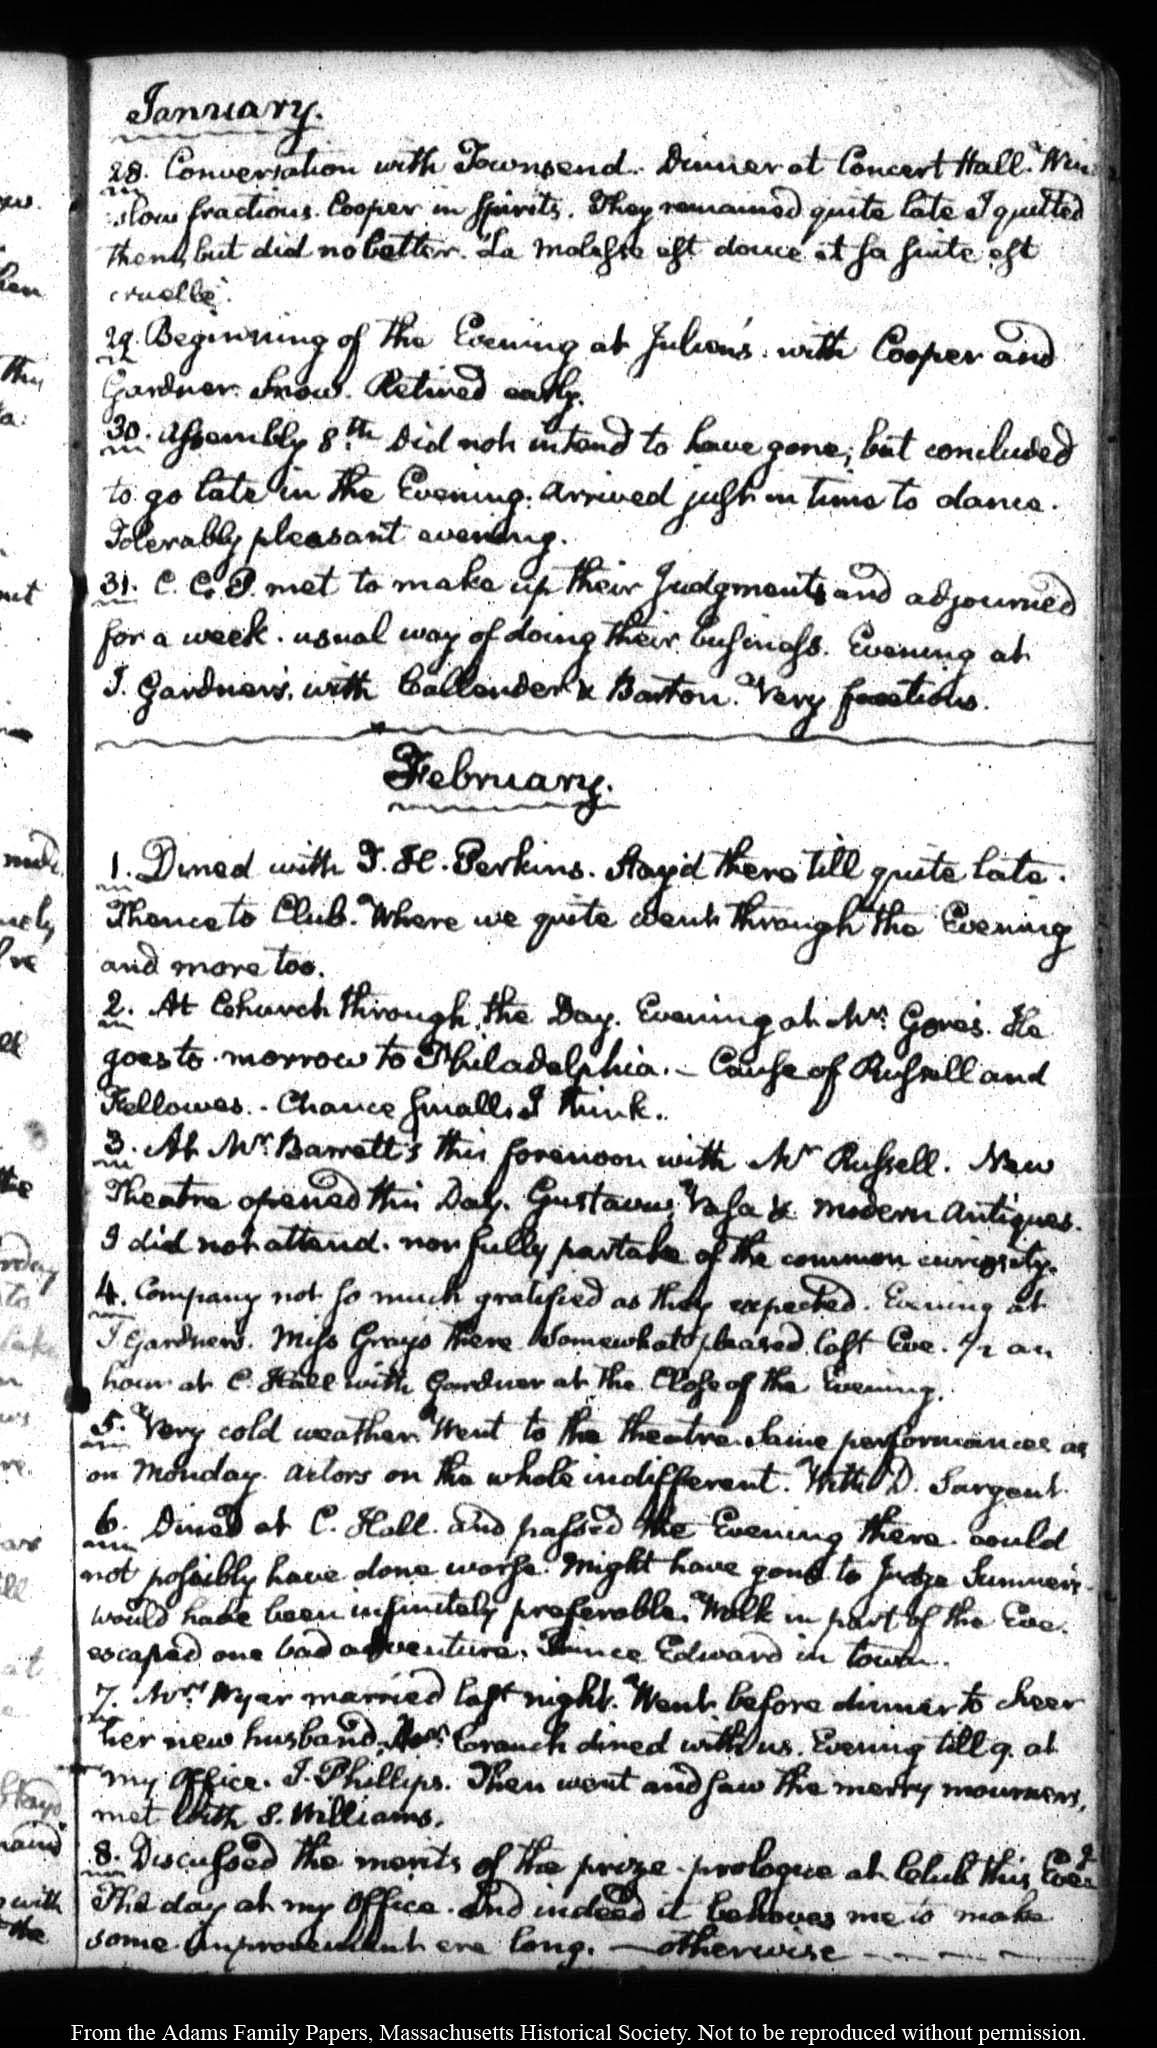 January.
28. Conversation with Townsend. Dinner at Concert Hall. Win
slow fractious. Cooper in spirits. They remained quite late I quitted
them, but did no better. La molesse est douce et sa suite est
cruelle.
29. Beginning of the Evening at Julien's. with Cooper and
Gardner. Snow. Retired early.
30. Assembly 8th. Did not intend to have gone; but concluded
to go late in the Evening. Arrived just in time to dance.
Tolerably pleasant evening.
31. C. C. P. met to make up their Judgments and adjourned
for a week. usual way of doing their business. Evening at
J. Gardner's, with Callender & Barton. Very facetious.
February.
1. Dined with T. H. Perkins. Stay'd there till quite late.
Thence to Club. Where we quite went through the Evening
and more too.
2. At Church through the Day. Evening at Mr. Gore's. He
goes to-morrow to Philadelphia. — Cause of Russell and
Fellowes. - Chance small I think.
3. At Mr. Barrett's this forenoon with Mr Russell. New
Theatre opened this Day. Gustavus Vasa & modern Antiques.
I did not attend. nor fully partake of the common curiosity.
4. Company not so much gratified as they expected. Evening at
J Gardners. Miss Grays there. Somewhat pleased last Eve. 1/2 an
hour at C. Hall with Gardner at the Close of the Evening.
5. Very cold weather. Went to the theatre. Same performances as
on Monday. Actors on the whole indifferent. With D. Sargent
6. Dined at C. Hall. and passed the Evening there. could
not possibly have done worse. Might have gone to Judge Sumner's.
would have been infinitely preferable. Walk in part of the Eve.
escaped one bad adventure. Prince Edward in town.
7. Mrs. Wyer married last night. Went before dinner to cheer
her new husband. Cranch dined with us. Evening till 9. at
my Office. J. Phillips. Then went and saw the merry mourners,
met with S. Williams.
8. Discussed the merits of the prize-prologue at Club this Eveg
The day at my Office. And indeed it behoves me to make
some improvement ere long. — otherwise - - - -
From the Adams Family Papers, Massachusetts Historical Society. Not to be reproduced without permission.